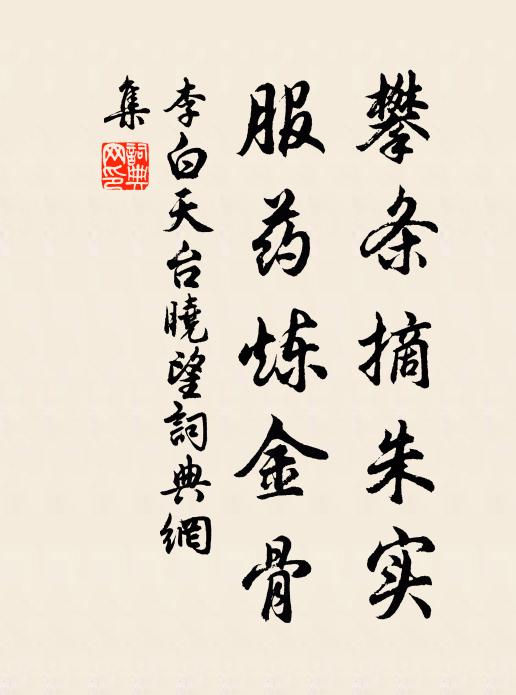 攀条摘朱实
服药炼金骨
李白天台曉望詞典網
集
詞典網印